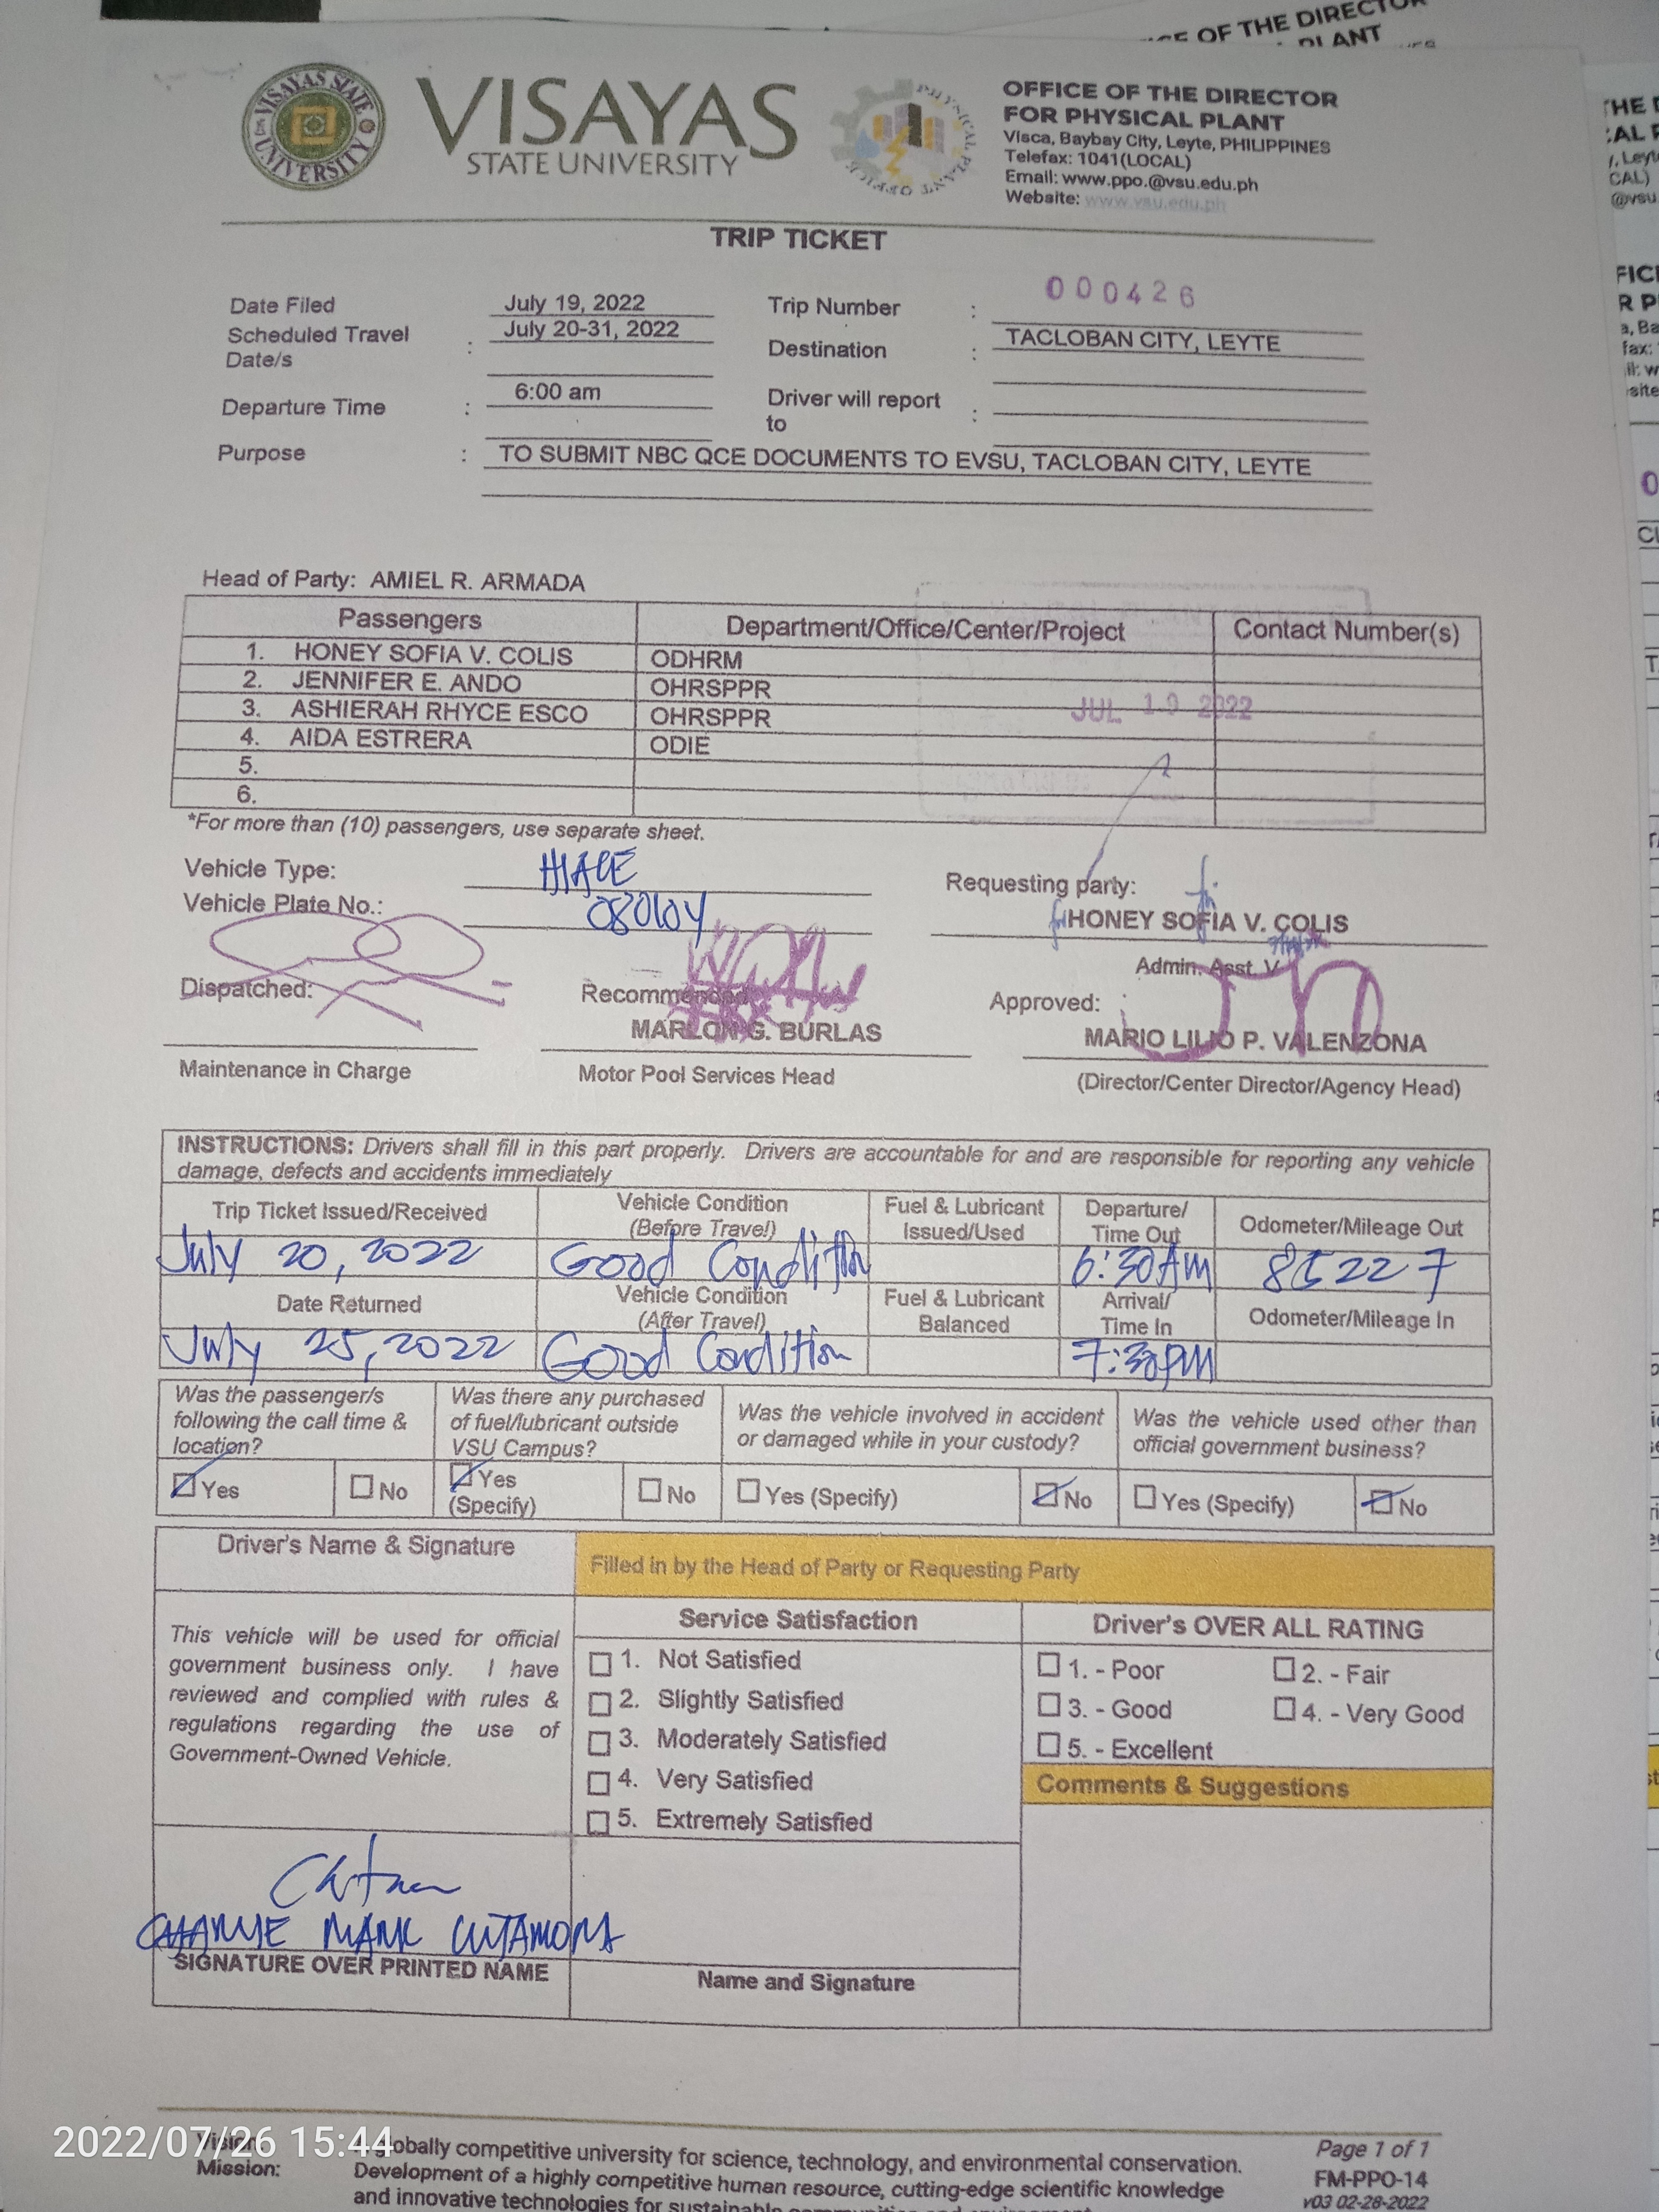 CE OF THE DIRECTOR
PLANT
VISAYAS STATE UNIVERSITY
VISAYAS
STATE UNIVERSITY
PHYSICAL PLANT OFFICE
OFFICE OF THE DIRECTOR
FOR PHYSICAL PLANT
Visca, Baybay City, Leyte, PHILIPPINES
Telefax: 1041(LOCAL)
Email: www.ppo.@vsu.edu.ph
Website: www.vsu.edu.ph
TRIP TICKET
Date Filed July 19, 2022 Trip Number : 000426
Scheduled Travel Date/s : July 20-31, 2022 Destination : TACLOBAN CITY, LEYTE
Departure Time : 6:00 am Driver will report to :
Purpose : TO SUBMIT NBC QCE DOCUMENTS TO EVSU, TACLOBAN CITY, LEYTE
Head of Party: AMIEL R. ARMADA
Passengers Department/Office/Center/Project Contact Number(s)
1. HONEY SOFIA V. COLIS ODHRM
2. JENNIFER E. ANDO OHRSPPR
3. ASHIERAH RHYCE ESCO OHRSPPR
JUL 19 2022
4. AIDA ESTRERA ODIE
5.
6.
*For more than (10) passengers, use separate sheet.
Vehicle Type: HIACE
Requesting party:
Vehicle Plate No.:
HONEY SOFIA V. COLIS
Admin. Asst. V
Dispatched: Recommended Approved:
MARLON G. BURLAS MARIO LILIO P. VALENZONA
Maintenance in Charge Motor Pool Services Head (Director/Center Director/Agency Head)
INSTRUCTIONS: Drivers shall fill in this part properly. Drivers are accountable for and are responsible for reporting any vehicle
damage, defects and accidents immediately
Trip Ticket Issued/Received Vehicle Condition (Before Travel) Fuel & Lubricant Issued/Used Departure/ Time Out Odometer/Mileage Out
July 20, 2022 Good Condition 6:30AM
Date Returned Vehicle Condition (After Travel) Fuel & Lubricant Balanced Arrival/ Time In Odometer/Mileage In
July 25, 2022 Good Condition 7:30pm
Was the passenger/s following the call time & location? Was there any purchased of fuel/lubricant outside VSU Campus? Was the vehicle involved in accident or damaged while in your custody? Was the vehicle used other than official government business?
Yes No Yes (Specify) No Yes (Specify) No Yes (Specify) No
Driver's Name & Signature
Filled in by the Head of Party or Requesting Party
Service Satisfaction Driver's OVER ALL RATING
This vehicle will be used for official
government business only. I have
reviewed and complied with rules &
regulations regarding the use of
Government-Owned Vehicle.
1. Not Satisfied
2. Slightly Satisfied
3. Moderately Satisfied
4. Very Satisfied
5. Extremely Satisfied
1. - Poor 2. - Fair
3. - Good 4. - Very Good
5. - Excellent
Comments & Suggestions
SIGNATURE OVER PRINTED NAME
Name and Signature
2022/07/26 15:44
Vision: A globally competitive university for science, technology, and environmental conservation.
Mission: Development of a highly competitive human resource, cutting-edge scientific knowledge
and innovative technologies for sustainable
Page 1 of 1
FM-PPO-14
v03 02-28-2022